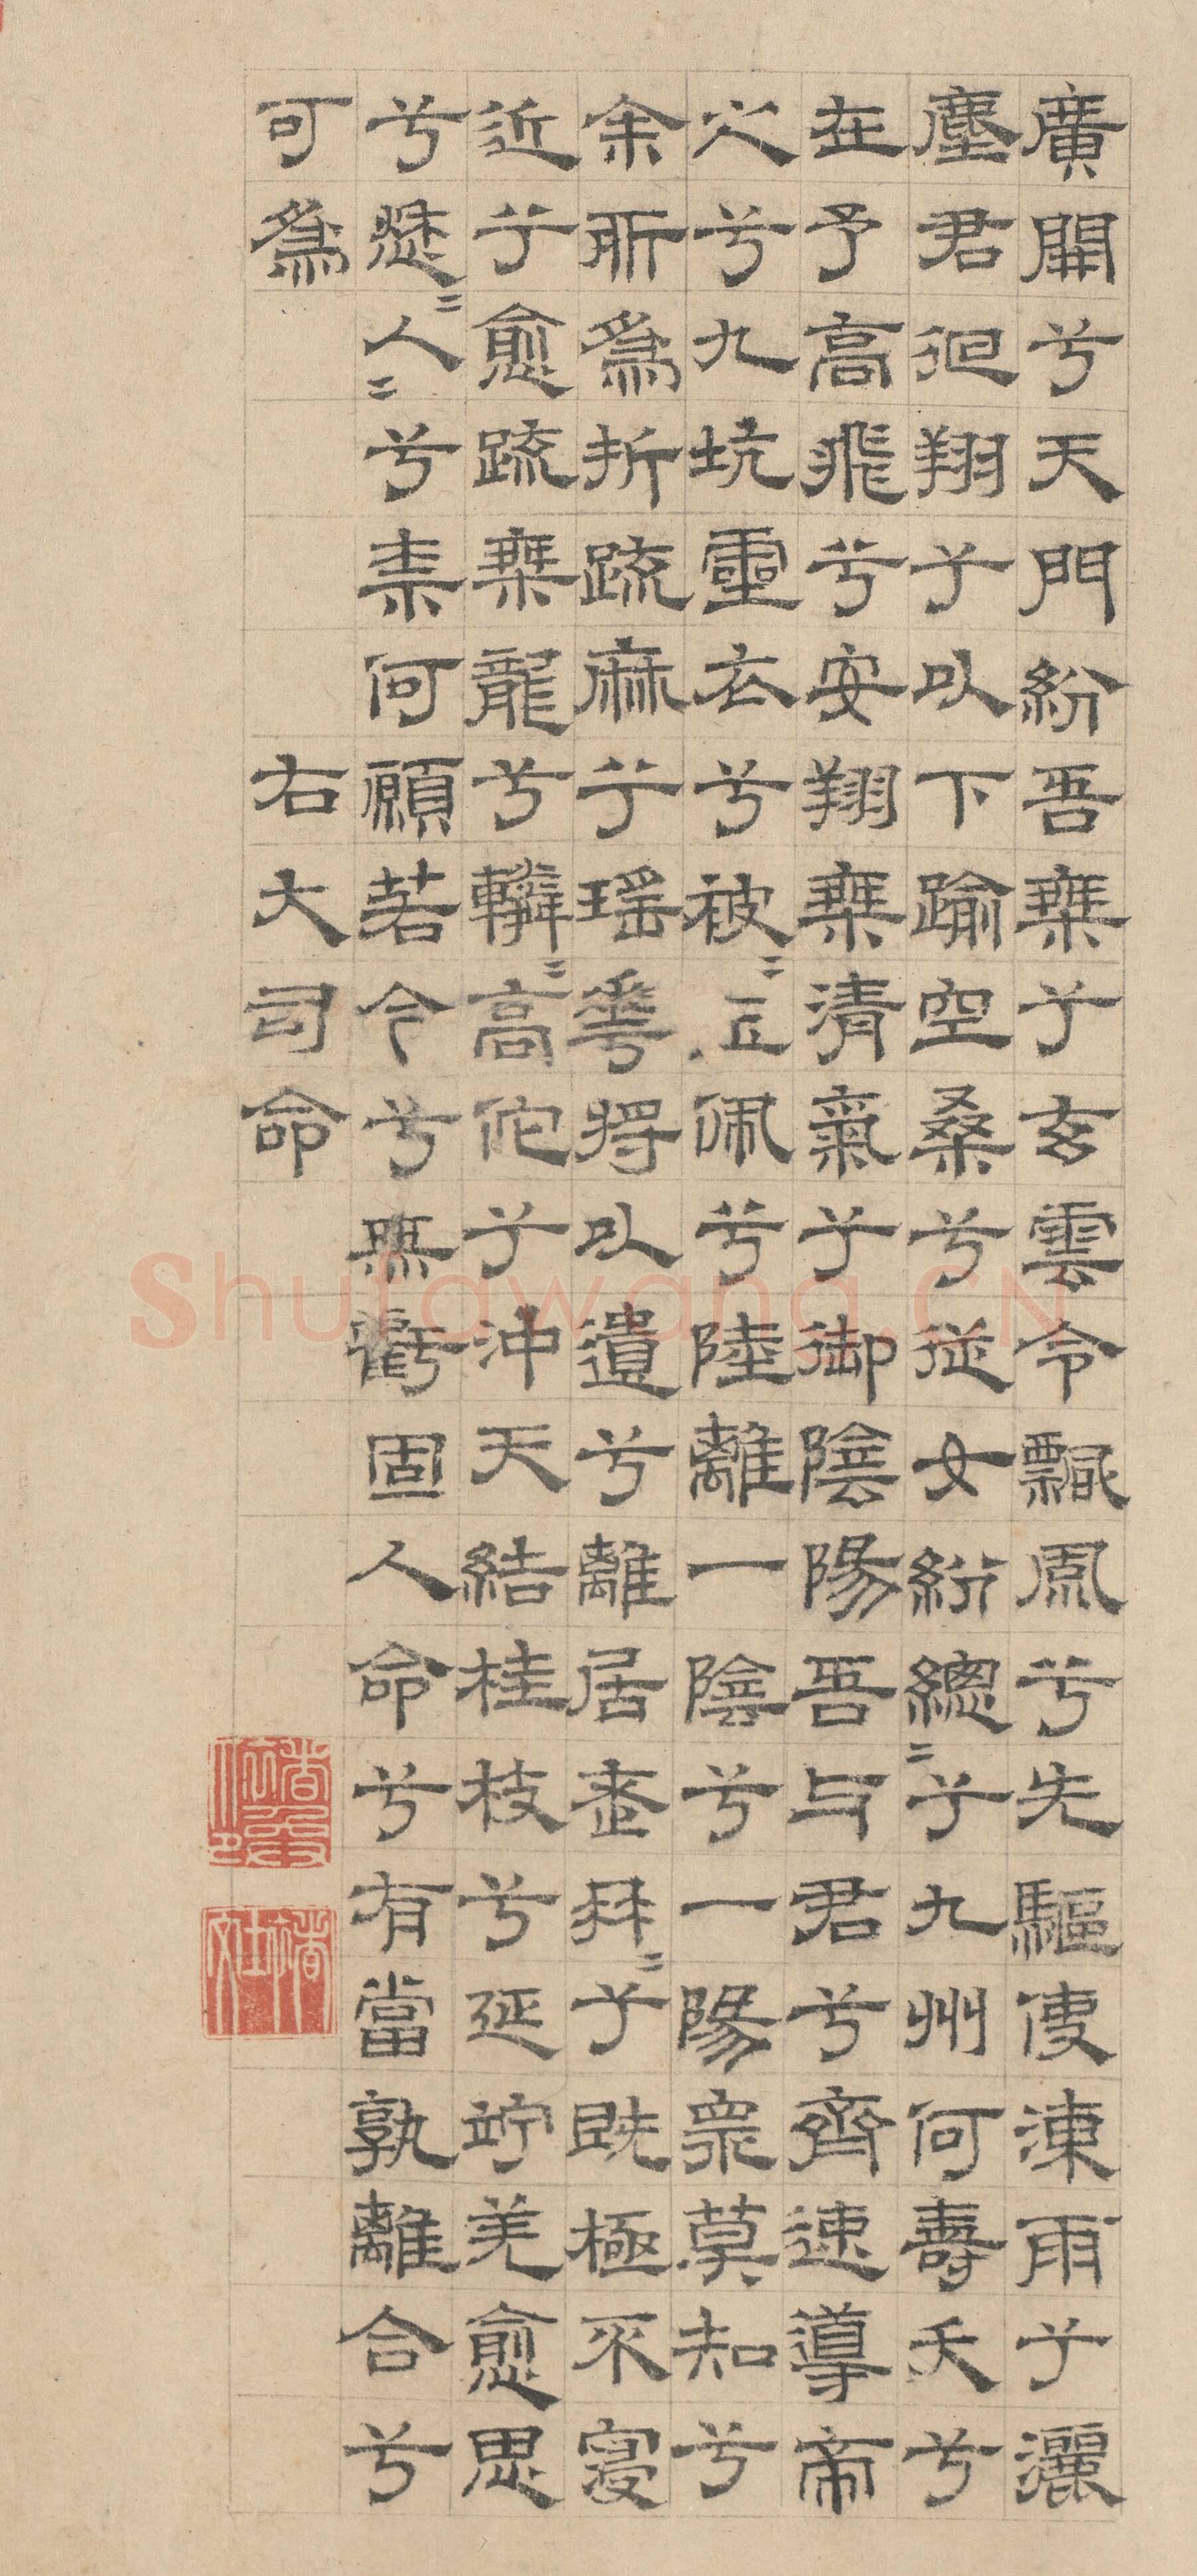 廣開兮天門紛吾椉兮玄雲令飄風兮先驅使涷雨兮灑
塵君徊翔兮以下踰空桑兮從女紛總〻兮九州何壽夭兮
在予高飛兮安翔椉清氣兮御陰陽吾与君兮齊速導帝
之兮九坑靈衣兮被〻玉佩兮陸離一陰兮一陽衆莫知兮
余所爲折疏麻兮瑤華將以遺兮離居老冉〻兮既極不寖
近兮愈疏椉龍兮轔〻高佗兮沖天結桂枝兮延竚羌愈思
兮愁〻人〻兮柰何願若今兮無虧固人命兮有當孰離合兮
可爲　右大司命
Shufawang.CN